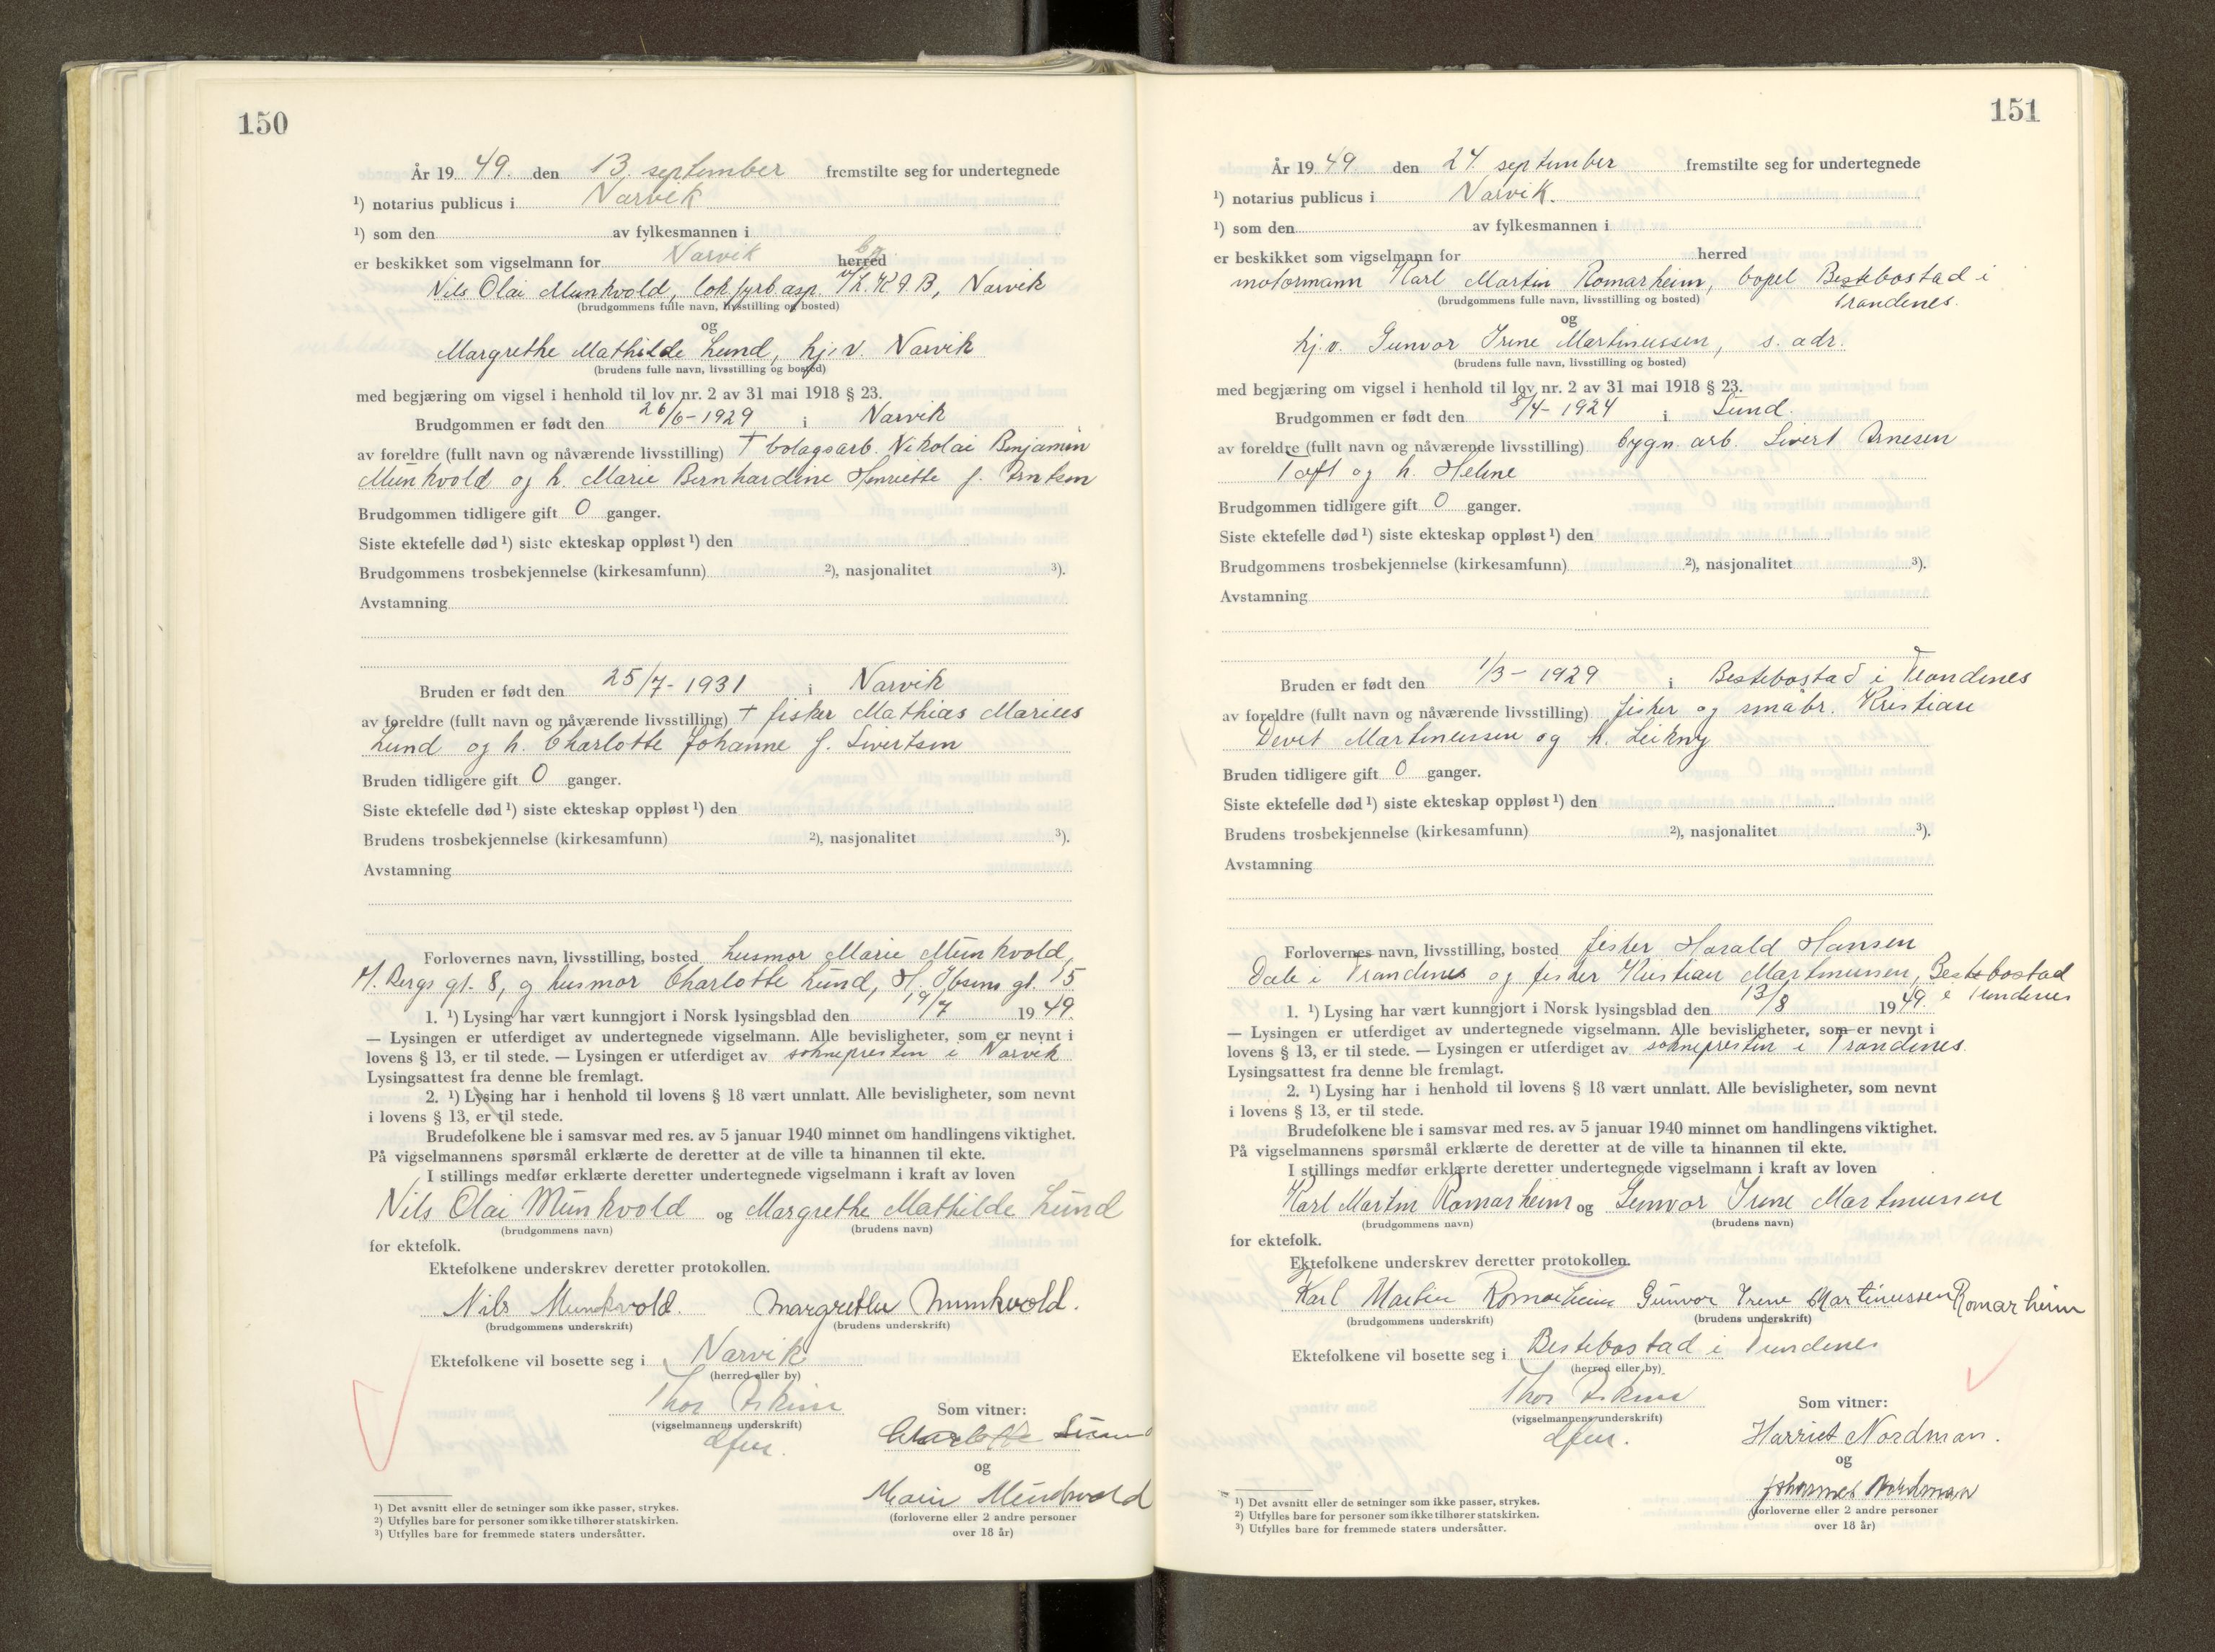 150
År 1949. den 13. september fremstilte seg for undertegnede
¹) notarius publicus i Narvik
¹) som den av fylkesmannen i
er beskikket som vigselmann for Narvik herred by
Nils Olai Munkvold, lok.fyrb.asp. v/L.K.A.B, Narvik
(brudgommens fulle navn, livsstilling og bosted)
og
Margrethe Mathilde Lund, hj.v. Narvik
(brudens fulle navn, livsstilling og bosted)
med begjæring om vigsel i henhold til lov nr. 2 av 31 mai 1918 § 23.
Brudgommen er født den 26/6-1929 i Narvik
av foreldre (fullt navn og nåværende livsstilling) † bolagsarb. Nikolai Benjamin
Munkvold og h. Marie Bernhardine Henriette f. Arntsen
Brudgommen tidligere gift 0 ganger.
Siste ektefelle død ¹) siste ekteskap oppløst ¹) den
Brudgommens trosbekjennelse (kirkesamfunn) ²), nasjonalitet ³).
Avstamning
Bruden er født den 25/7-1931 i Narvik
av foreldre (fullt navn og nåværende livsstilling) † fisker Mathias Marius
Lund og h. Charlotte Johanne f. Sivertsen
Bruden tidligere gift 0 ganger.
Siste ektefelle død ¹) siste ekteskap oppløst ¹) den
Brudens trosbekjennelse (kirkesamfunn) ²), nasjonalitet ³).
Avstamning
Forlovernes navn, livsstilling, bosted husmor Marie Munkvold,
H. Bergs gt. 8, og husmor Charlotte Lund, H. Ibsens gt. 15
1. ¹) Lysing har vært kunngjort i Norsk lysingsblad den 19/7 1949.
— Lysingen er utferdiget av undertegnede vigselmann. Alle bevisligheter, som er nevnt i
lovens § 13, er til stede. — Lysingen er utferdiget av soknepresten i Narvik
Lysingsattest fra denne ble fremlagt.
2. ¹) Lysing har i henhold til lovens § 18 vært unnlatt. Alle bevisligheter, som nevnt
i lovens § 13, er til stede.
Brudefolkene ble i samsvar med res. av 5 januar 1940 minnet om handlingens viktighet.
På vigselmannens spørsmål erklærte de deretter at de ville ta hinannen til ekte.
I stillings medfør erklærte deretter undertegnede vigselmann i kraft av loven
Nils Olai Munkvold og Margrethe Mathilde Lund
(brudgommens navn) (brudens navn)
for ektefolk.
Ektefolkene underskrev deretter protokollen.
Nils Munkvold. Margrethe Munkvold.
(brudgommens underskrift) (brudens underskrift)
Ektefolkene vil bosette seg i Narvik
(herred eller by)
Thor Askim
(vigselmannens underskrift)
dfm.
Som vitner:
Charlotte Lund
og
Marie Munkvold
(forloverne eller 2 andre personer
over 18 år)
¹) Det avsnitt eller de setninger som ikke passer, strykes.
²) Utfylles bare for personer som ikke tilhører statskirken.
³) Utfylles bare for fremmede staters undersåtter.
151
År 1949. den 24. september fremstilte seg for undertegnede
¹) notarius publicus i Narvik.
¹) som den av fylkesmannen i
er beskikket som vigselmann for herred
motormann Karl Martin Romarheim, bopel Bestebostad i
Trondenes.
(brudgommens fulle navn, livsstilling og bosted)
og
hj.v. Gunvor Irene Martinussen, s. adr.
(brudens fulle navn, livsstilling og bosted)
med begjæring om vigsel i henhold til lov nr. 2 av 31 mai 1918 § 23.
Brudgommen er født den 8/4-1924 i Sund.
av foreldre (fullt navn og nåværende livsstilling) bygn.arb. Sivert Arnesen
Toft og h. Helene
Brudgommen tidligere gift 0 ganger.
Siste ektefelle død ¹) siste ekteskap oppløst ¹) den
Brudgommens trosbekjennelse (kirkesamfunn) ²), nasjonalitet ³).
Avstamning
Bruden er født den 1/3-1929 i Bestebostad i Trondenes
av foreldre (fullt navn og nåværende livsstilling) fisker og småbr. Kristian
Devet Martinussen og h. Leikny
Bruden tidligere gift 0 ganger.
Siste ektefelle død ¹) siste ekteskap oppløst ¹) den
Brudens trosbekjennelse (kirkesamfunn) ²), nasjonalitet ³).
Avstamning
Forlovernes navn, livsstilling, bosted fisker Harald Hansen
Dale i Trondenes og fisker Kristian Martinussen, Bestebostad
i Trondenes
1. ¹) Lysing har vært kunngjort i Norsk lysingsblad den 13/8 1949.
— Lysingen er utferdiget av undertegnede vigselmann. Alle bevisligheter, som er nevnt i
lovens § 13, er til stede. — Lysingen er utferdiget av soknepresten i Trondenes.
Lysingsattest fra denne ble fremlagt.
2. ¹) Lysing har i henhold til lovens § 18 vært unnlatt. Alle bevisligheter, som nevnt
i lovens § 13, er til stede.
Brudefolkene ble i samsvar med res. av 5 januar 1940 minnet om handlingens viktighet.
På vigselmannens spørsmål erklærte de deretter at de ville ta hinannen til ekte.
I stillings medfør erklærte deretter undertegnede vigselmann i kraft av loven
Karl Martin Romarheim og Gunvor Irene Martinussen
(brudgommens navn) (brudens navn)
for ektefolk.
Ektefolkene underskrev deretter protokollen.
Karl Martin Romarheim Gunvor Irene Martinussen Romarheim
(brudgommens underskrift) (brudens underskrift)
Ektefolkene vil bosette seg i Bestebostad i Trondenes
(herred eller by)
Thor Askim
(vigselmannens underskrift)
dfm.
Som vitner:
Harriet Nordman.
og
Johannes Nordman
(forloverne eller 2 andre personer
over 18 år)
¹) Det avsnitt eller de setninger som ikke passer, strykes.
²) Utfylles bare for personer som ikke tilhører statskirken.
³) Utfylles bare for fremmede staters undersåtter.